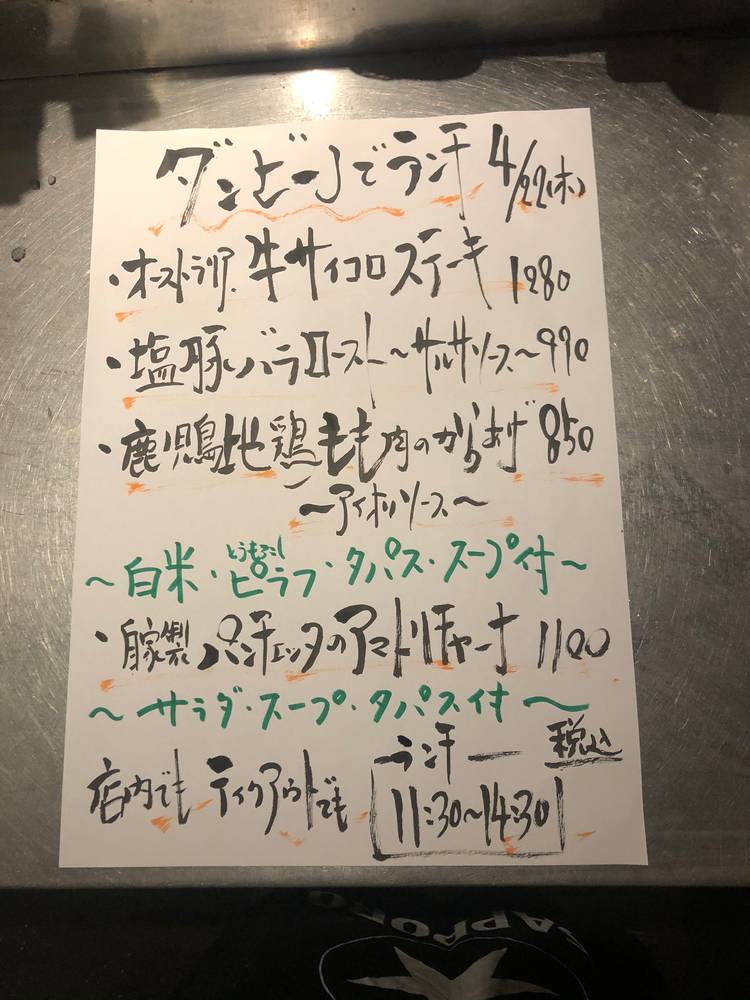 ダンビーノでランチ 4/22(木)
・オーストラリア牛サイコロステーキ 1280
・塩豚バラロースト〜サルサソース〜 990
・鹿児島地鶏もも肉のからあげ 850
〜アイオリソース〜
とうもろこし
〜白米・ピラフ・タパス・スープ付〜
・自家製パンチェッタのアマトリチャーナ 1100
〜サラダ・スープ・タパス付〜
ランチ 税込
店内でも テイクアウトでも 11:30〜14:30
SAPPORO